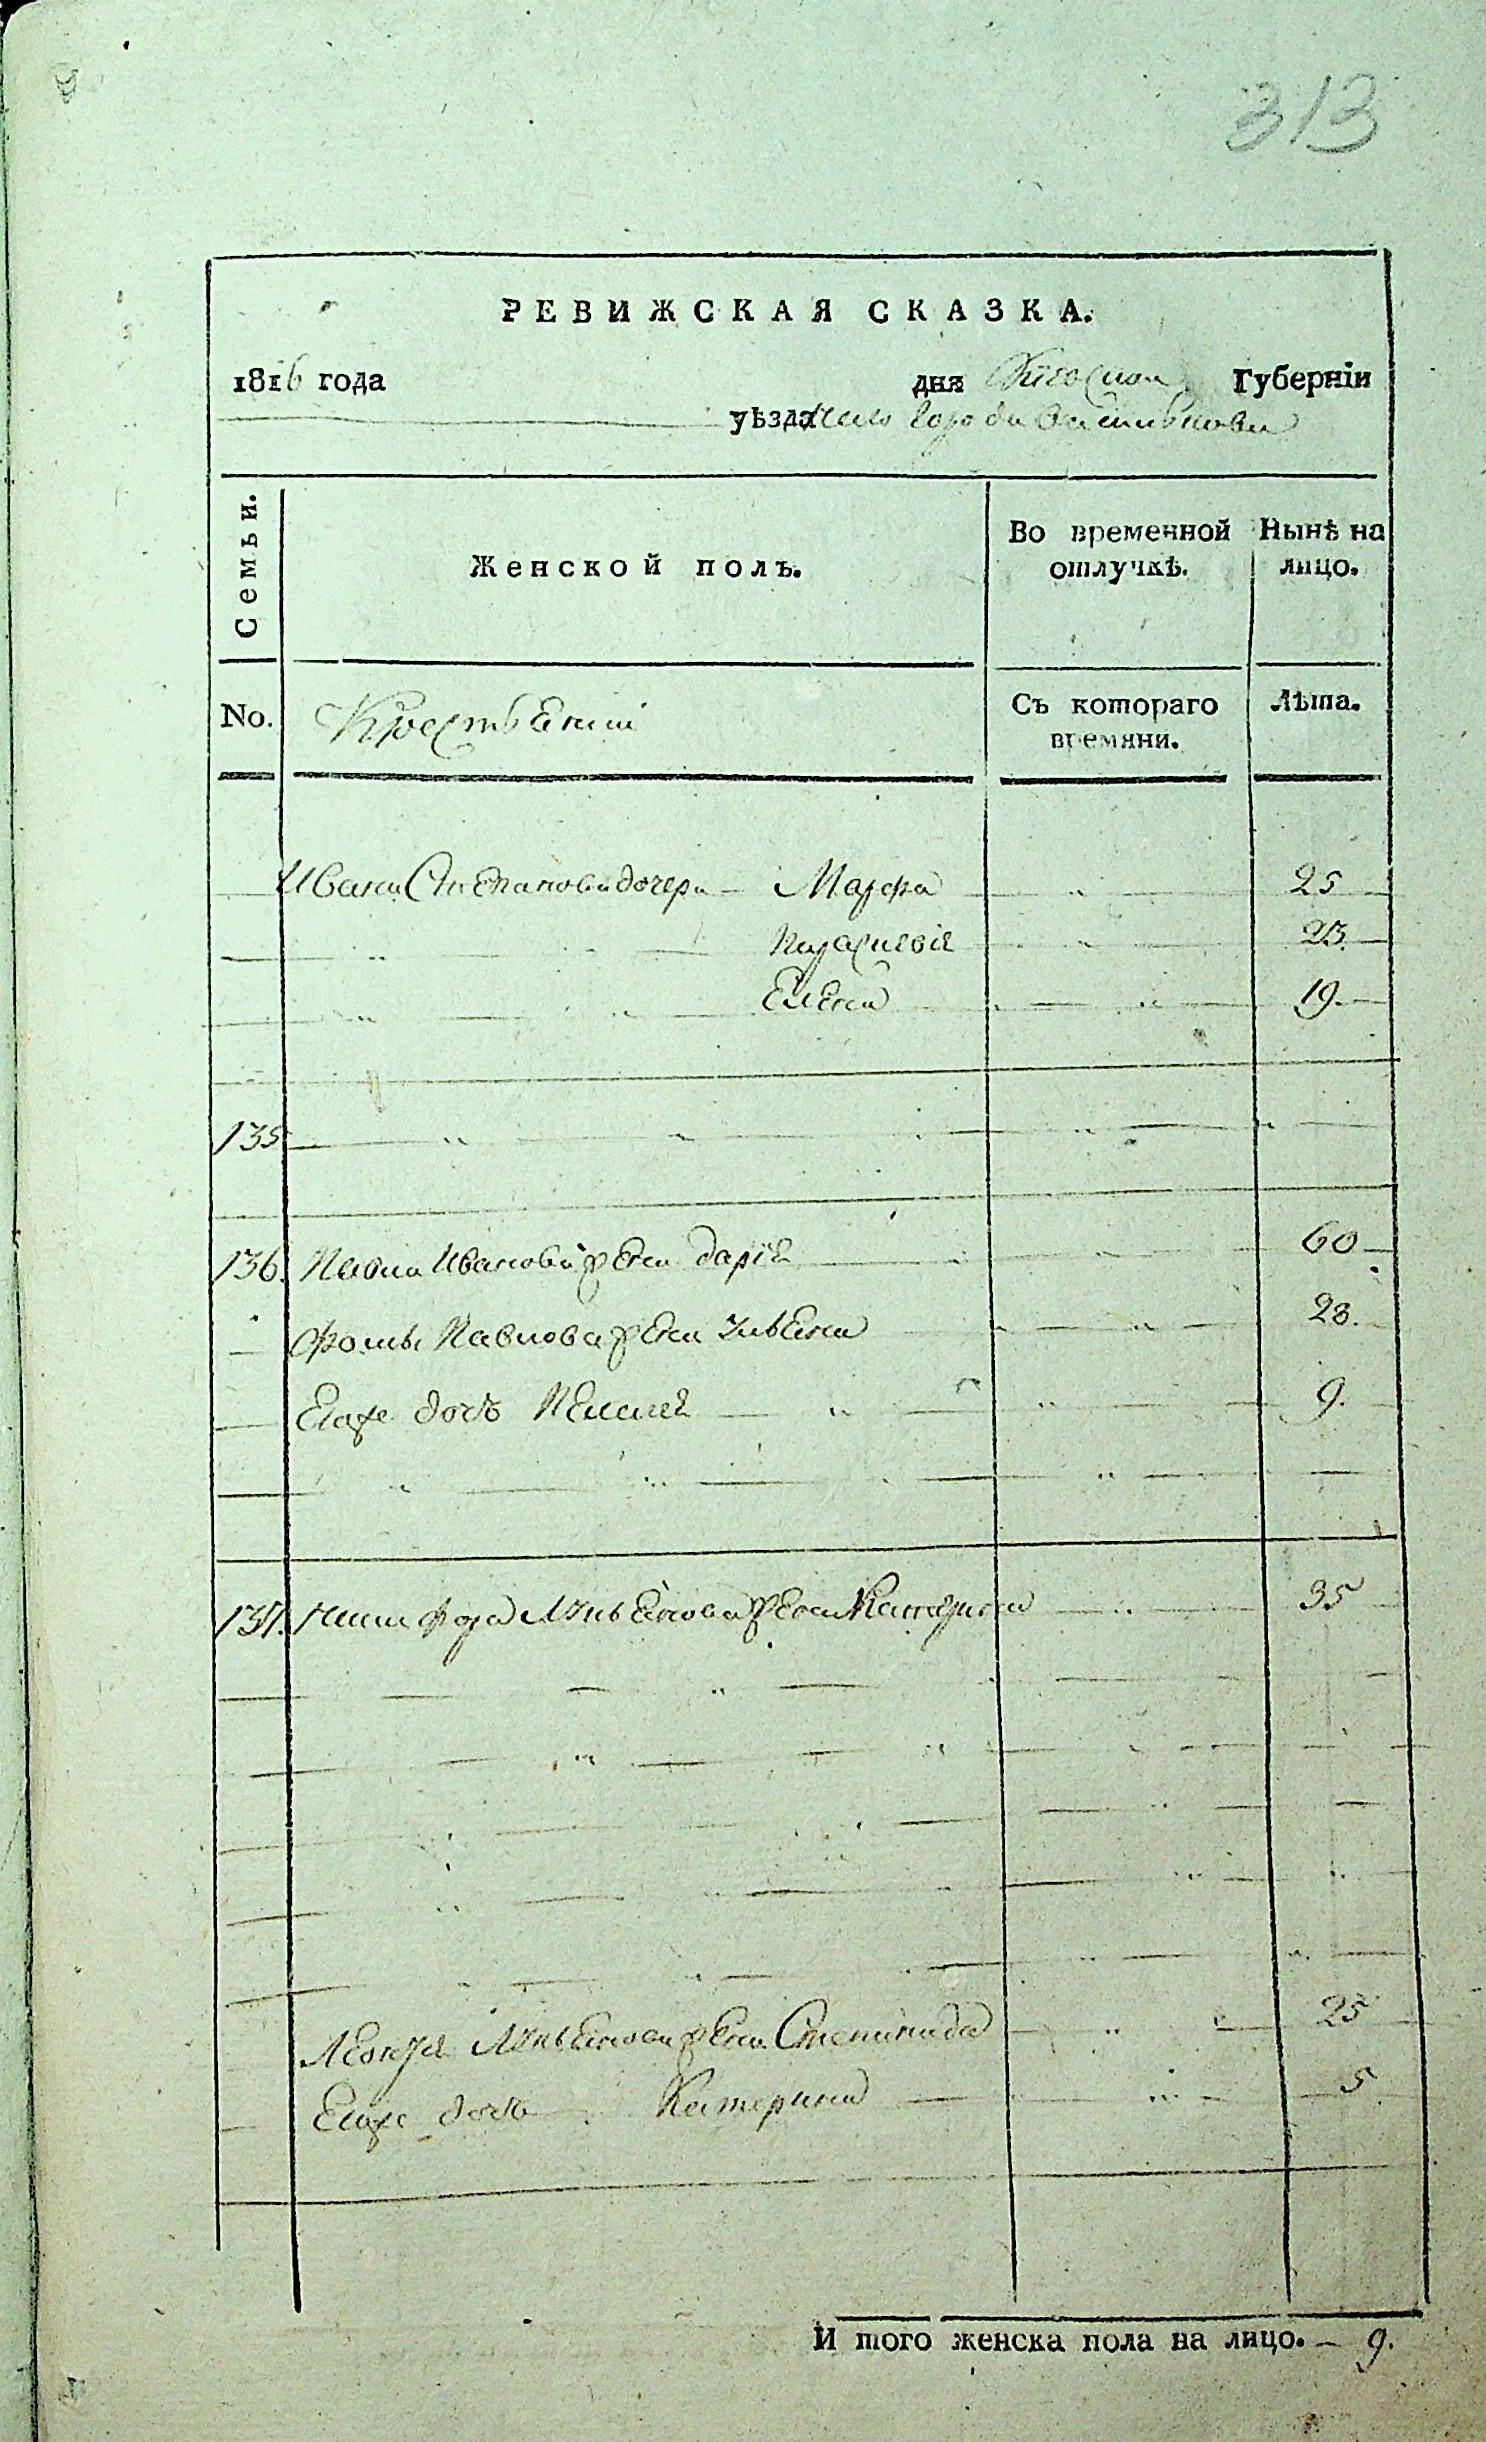 313
РЕВИЖСКАЯ СКАЗКА.
1816 года дня Киевской Губерніи
уѣзда города Василькова
Семьи. Женской полъ. Во временной отлучкѣ. Нынѣ на лицо.
No. Съ котораго времяни. Лѣта.
Ивана Степанова дочери Марфа 25
Параскевія 23.
Елена 19.
135
136. Павла Иванова жена Дарія 60
Фомы Павлова жена 28.
Егоже дочь Пелагея 9.
137. Никифора жена Катерина 35
жена Степанида 25
Егоже дочь Катерина 5
И того женска пола на лицо. 9.